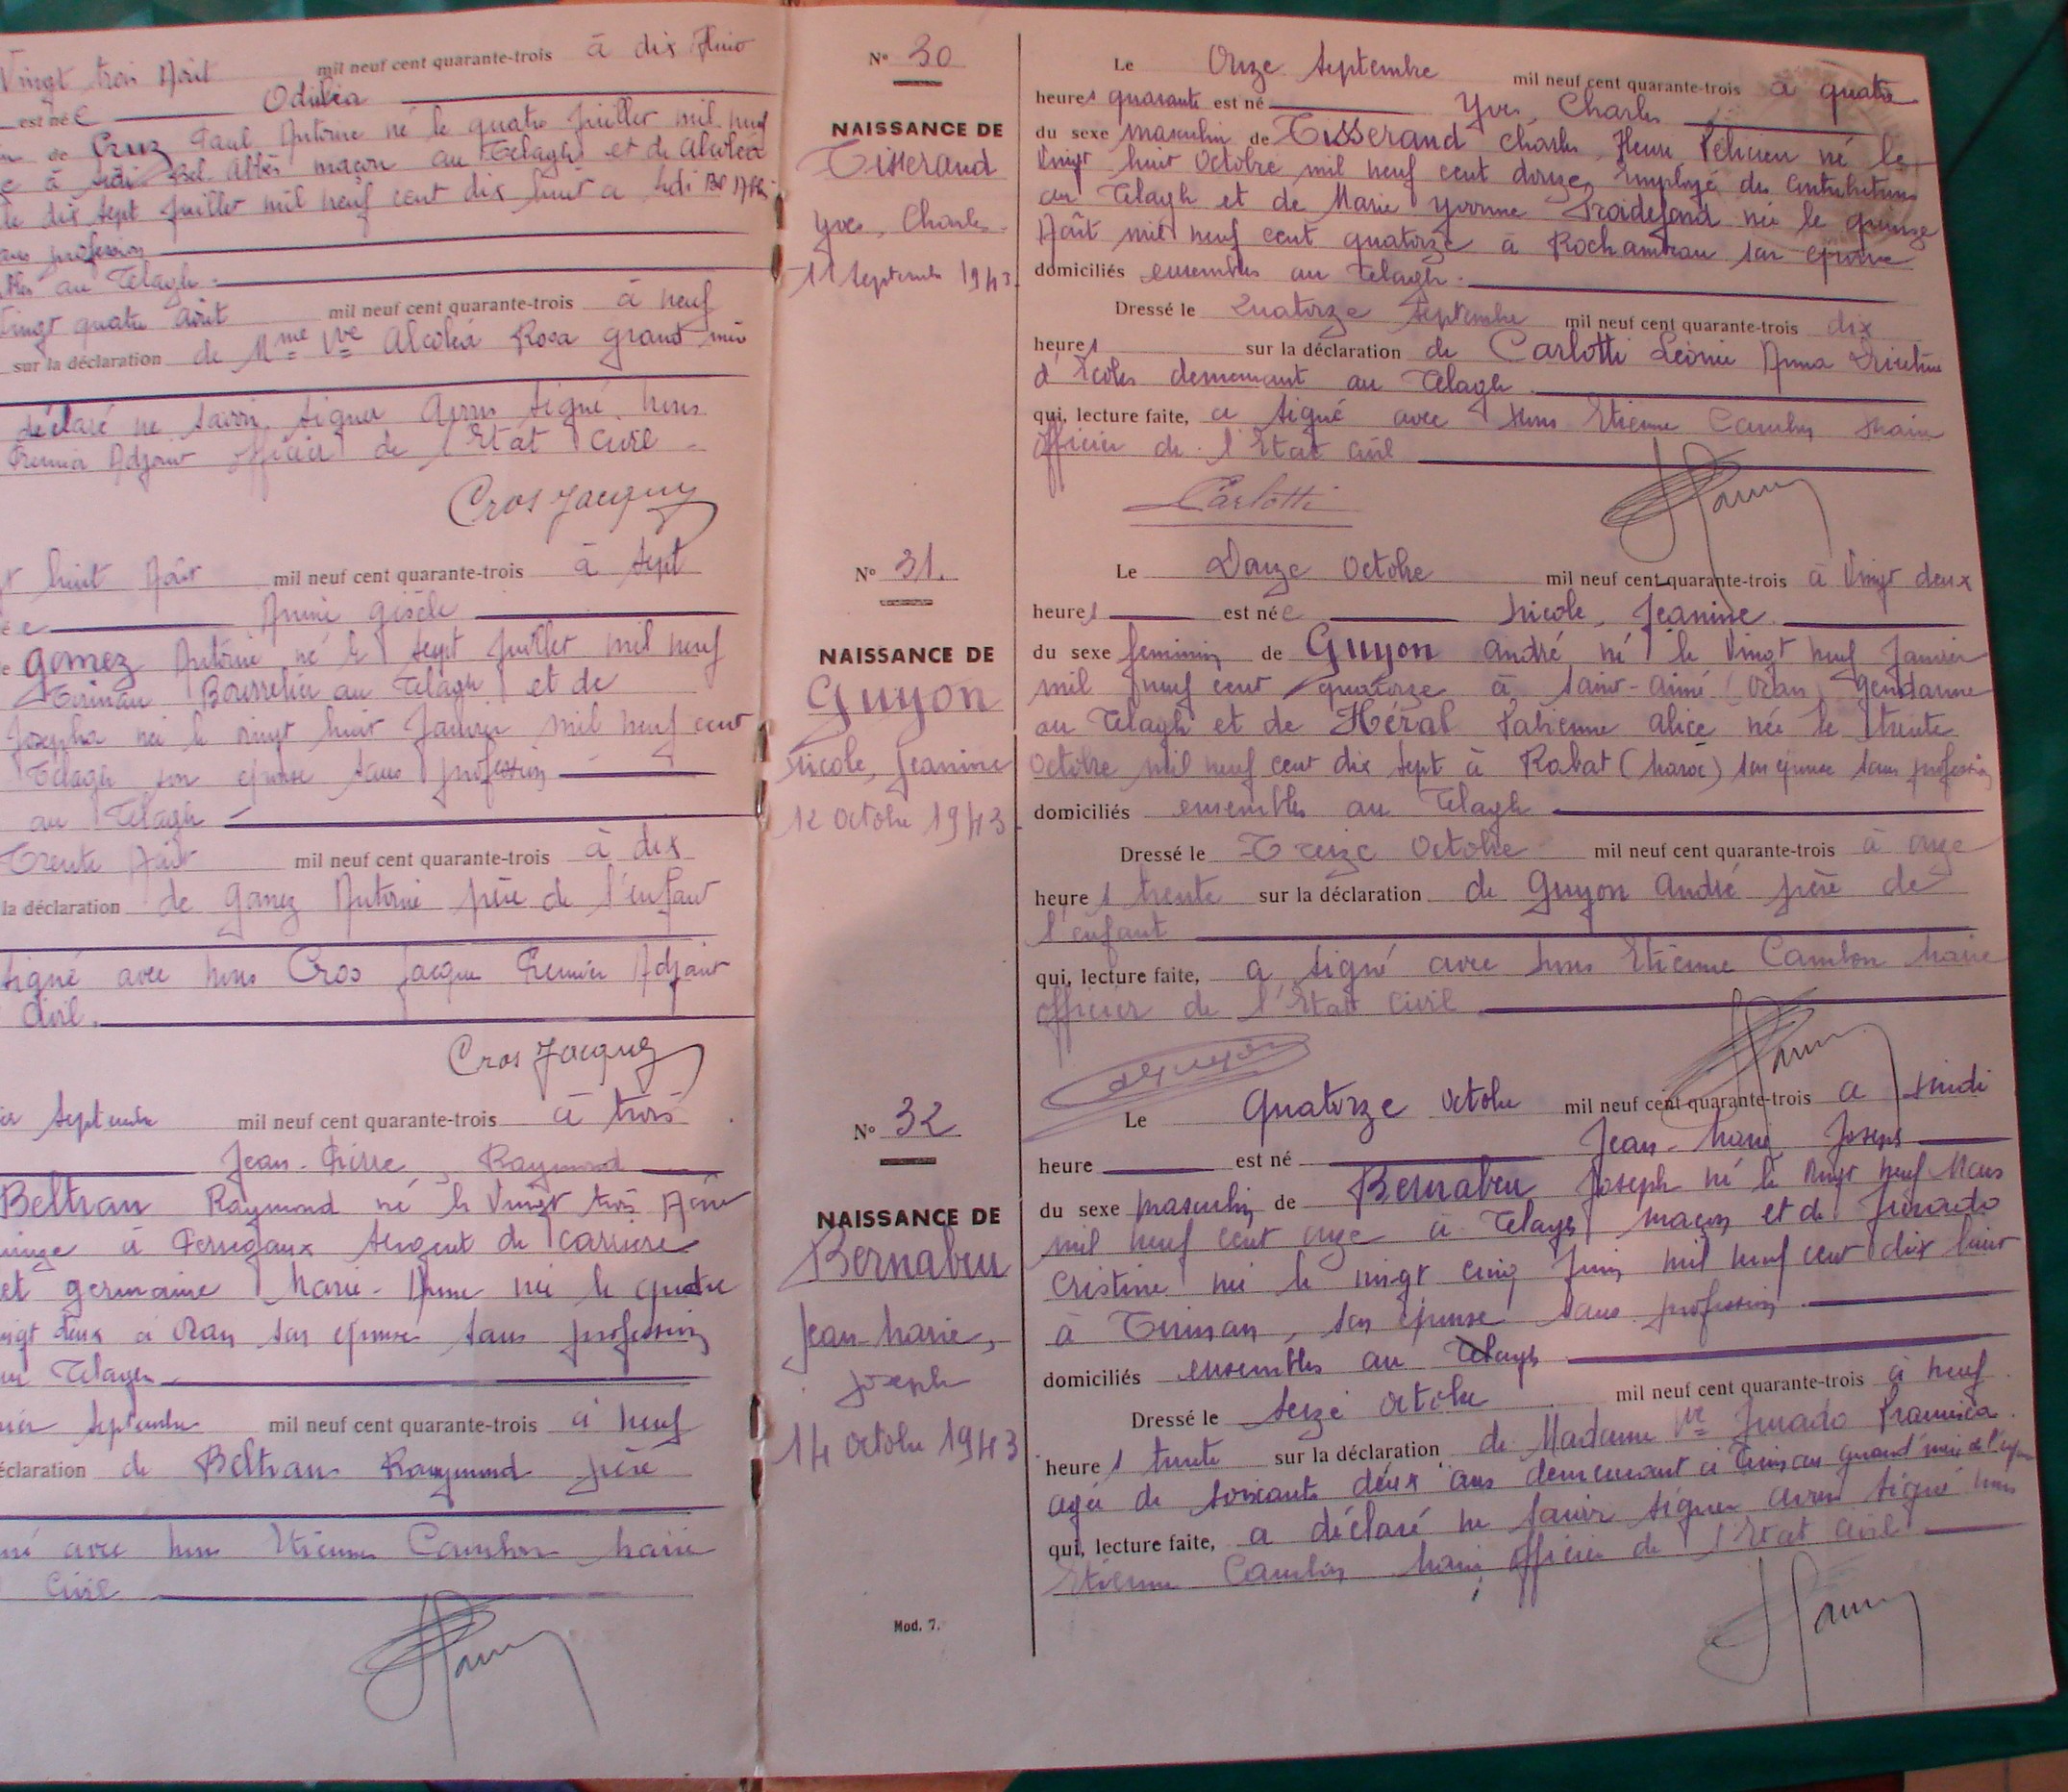 Vingt trois Août mil neuf cent quarante-trois à dix huit
est née Odilia
de Cruz Paul Antoine né le quatre Juillet mil neuf
à Sidi Bel Abbès maçon au Télagh et de Alcoléa
le dix sept Juillet mil neuf cent dix huit à Sidi Bel Abbès
sans profession
au Télagh
Vingt quatre Août mil neuf cent quarante-trois à neuf
sur la déclaration de Mme Vve Alcoléa Rosa grand mère
déclaré ne savoir signer avons signé nous
Premier Adjoint officier de l'Etat Civil
Cros Jacques
huit Août mil neuf cent quarante-trois à sept
e Gisèle
Gomez Antoine né le sept Juillet mil neuf
Ténirau Bourrelier au Télagh et de
Josepha née le vingt huit Janvier mil neuf cent
Télagh son épouse sans profession
au Télagh
Trente Août mil neuf cent quarante-trois à dix
la déclaration de Gomez Antoine père de l'enfant
signé avec nous Cros Jacques Premier Adjoint
Civil.
Cros Jacques
Septembre mil neuf cent quarante-trois à trois
Jean-Pierre, Raymond
Beltran Raymond né le Vingt trois Août
à Perrégaux Sergent de carrière
et Germaine Marie-Anne née le quatre
vingt deux à Oran son épouse sans profession
Télagh
Septembre mil neuf cent quarante-trois à neuf
déclaration de Beltran Raymond père
avec nous Etienne Cambon Maire
Civil
N° 30
NAISSANCE DE
Tisserand
Yves, Charles
11 Septembre 1943
Le Onze Septembre mil neuf cent quarante-trois à quatre
heures quarante est né Yves, Charles
du sexe masculin de Tisserand Charles Henri Félicien né le
Vingt huit Octobre mil neuf cent douze, employé des contributions
au Télagh et de Marie Yvonne Froidefond née le quinze
Août mil neuf cent quatorze à Rochambeau son épouse
domiciliés ensembles au Télagh.
Dressé le Quatorze Septembre mil neuf cent quarante-trois dix
heures sur la déclaration de Carlotti Léonie Anna Directrice
d'Ecoles demeurant au Télagh
qui, lecture faite, a signé avec Nous Etienne Cambon Maire
Officier de l'Etat Civil
Carlotti
N° 31.
NAISSANCE DE
Guyon
Nicole, Jeanine
12 Octobre 1943
Le Douze Octobre mil neuf cent quarante-trois à Vingt deux
heures est née Nicole, Jeanine
du sexe féminin de Guyon André né le Vingt neuf Janvier
mil neuf cent quatorze à Saint-Aimé (Oran) Gendarme
au Télagh et de Héral Fabienne Alice née le trente
Octobre mil neuf cent dix sept à Rabat (Maroc) son épouse sans profession
domiciliés ensembles au Télagh
Dressé le Treize Octobre mil neuf cent quarante-trois à onze
heures trente sur la déclaration de Guyon André père de
l'enfant
qui, lecture faite, a signé avec Nous Etienne Cambon Maire
Officier de l'Etat Civil
N° 32
NAISSANCE DE
Bernabeu
Jean-Marie,
Joseph
14 Octobre 1943
Le Quatorze Octobre mil neuf cent quarante-trois à Midi
heure est né Jean-Marie Joseph
du sexe masculin de Bernabeu Joseph né le Vingt neuf Mars
mil neuf cent onze à Télagh maçon et de Jurado
Cristine née le vingt cinq Juin mil neuf cent dix huit
à Ténirau, son épouse sans profession
domiciliés ensembles au Télagh
Dressé le Seize Octobre mil neuf cent quarante-trois à neuf
heures trente sur la déclaration de Madame Vve Jurado Francisca
agée de soixante deux ans demeurant à Ténirau grand'mère de l'enfant
qui, lecture faite, a déclaré ne savoir signer avons signé nous
Etienne Cambon Maire Officier de l'Etat Civil
Mod. 7.